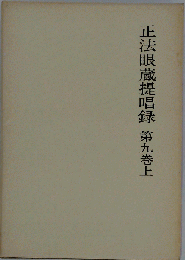 正法眼蔵提唱録 第九巻上